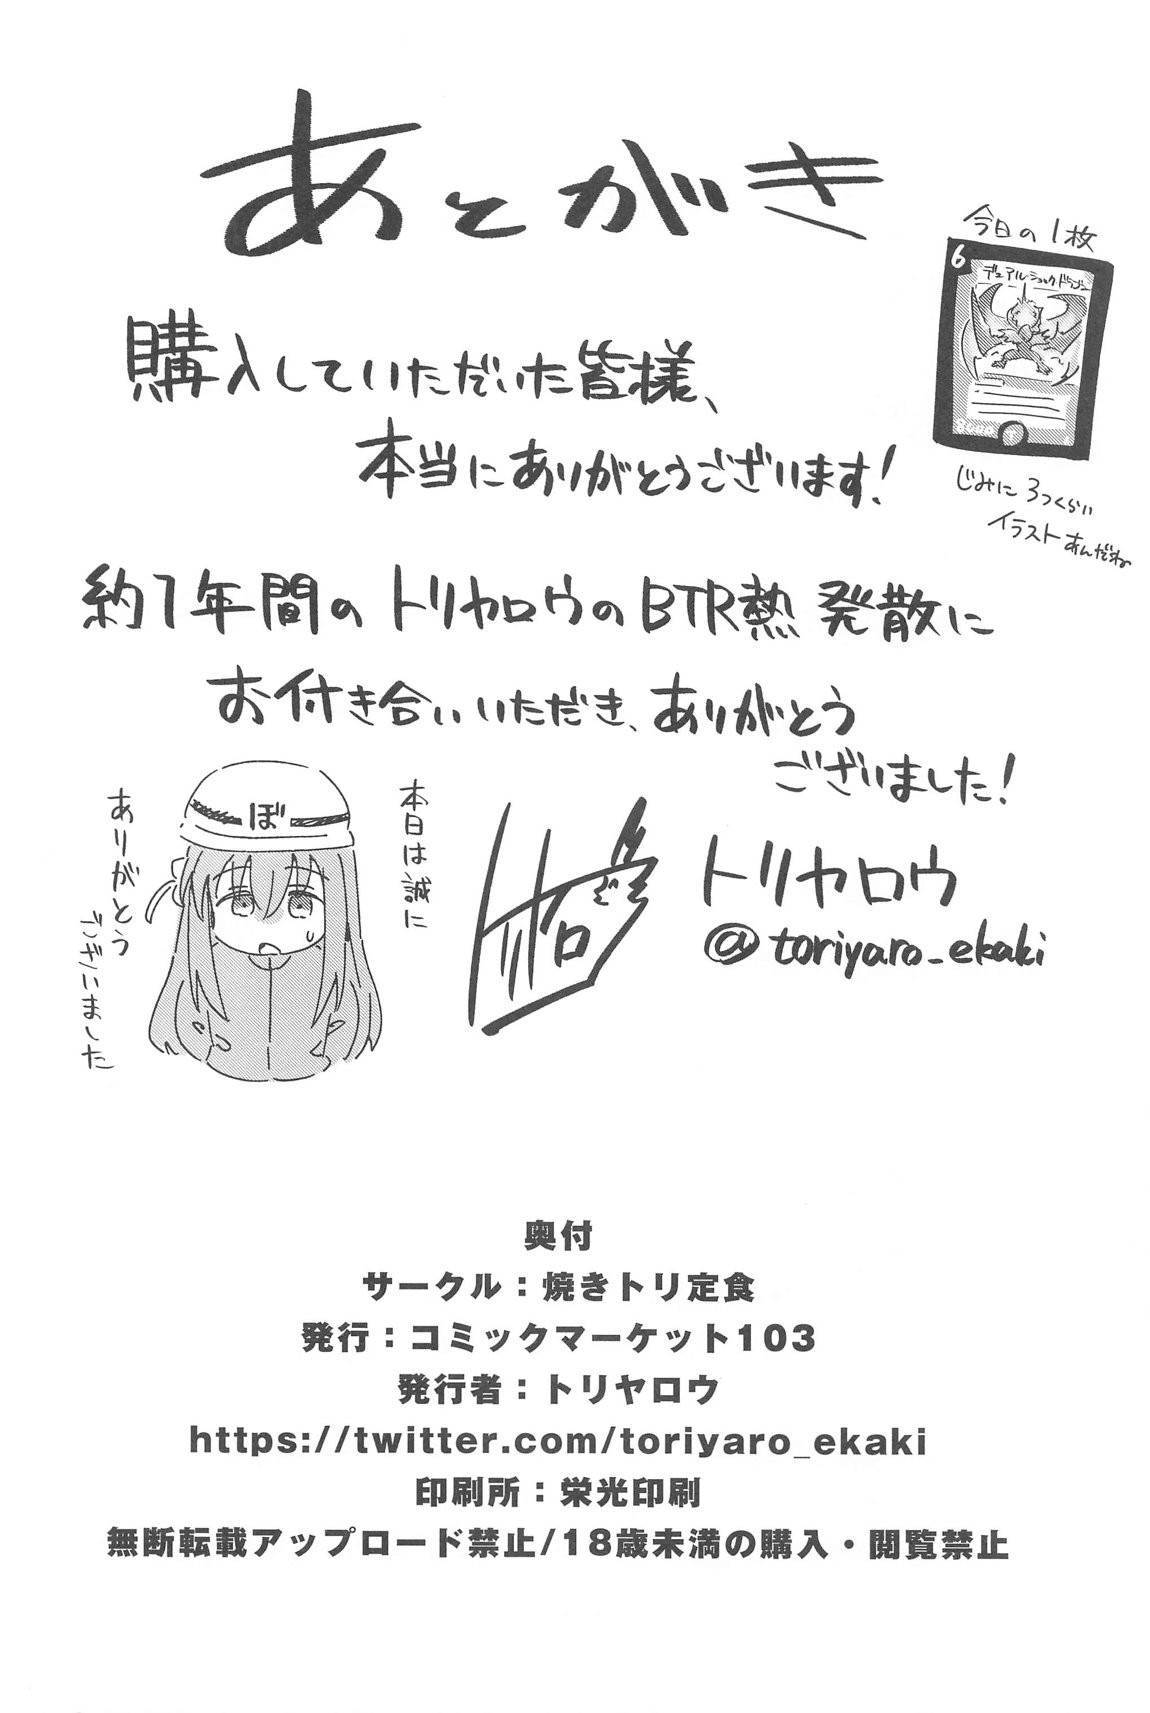 あとがき
今日の1枚
6
デュアルショックドラゴン
じみに3つくらい
イラストあんだね
購入していただいた皆様、
本当にありがとうございます!
約1年間のトリヤロウのBTR熱発散に
お付き合いいただき、ありがとう
ございました!
本日は誠に
ありがとう
ございました
ぼ
トリヤロウ
@toriyaro_ekaki
奥付
サークル：焼きトリ定食
発行：コミックマーケット103
発行者：トリヤロウ
https://twitter.com/toriyaro_ekaki
印刷所：栄光印刷
無断転載アップロード禁止/18歳未満の購入・閲覧禁止